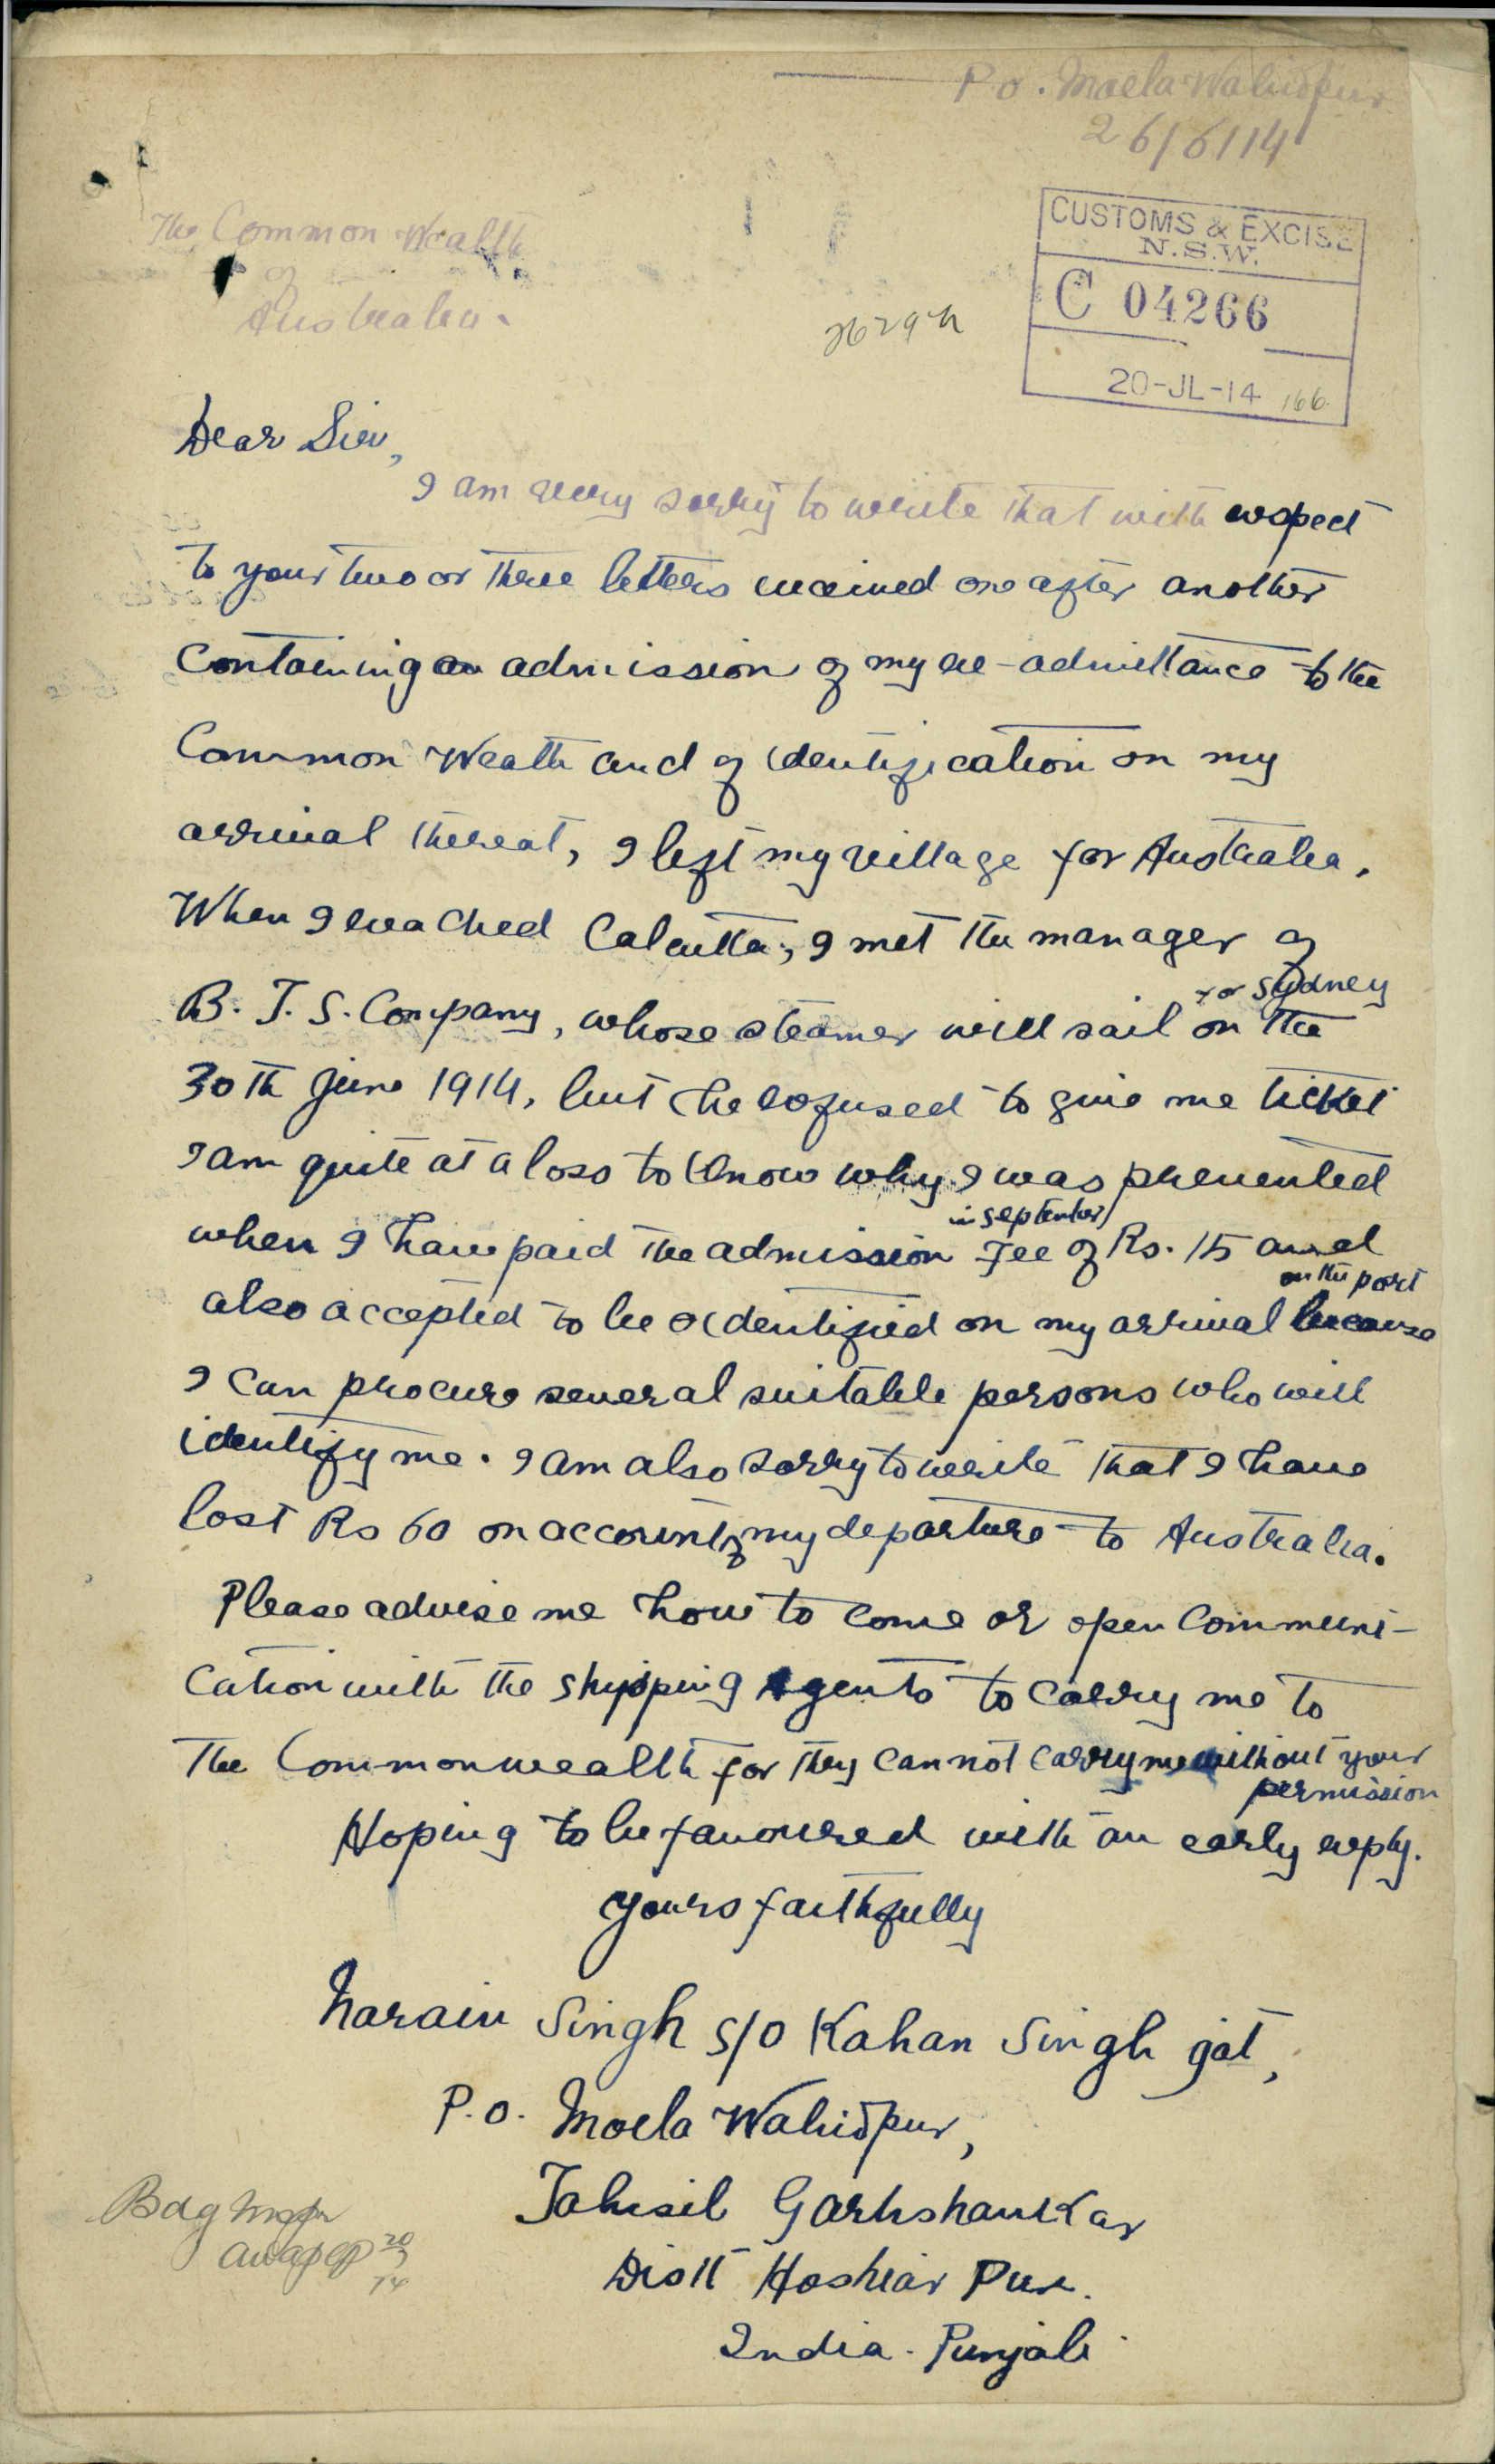 P.O. Moela Wahidpur
26/6/14
The Common Wealth
of
Australia.
CUSTOMS & EXCISE
N.S.W.
C 04266
20-JL-14 166
Dear Sir,
I am very sorry to write that with respect
to your two or three letters received one after another
containing an admission of my re-admittance to the
Common Wealth and of identification on my
arrival thereat, I left my village for Australia.
When I reached Calcutta, I met the manager of
B. I. S. Company, whose steamer will sail for Sydney on the
30th June 1914, but he refused to give me ticket
I am quite at a loss to know why I was prevented
when I have paid the admission Fee in September of Rs. 15 and
also accepted to be identified on my arrival on the port because
I can procure several suitable persons who will
identify me. I am also sorry to write that I have
lost Rs 60 on account of my departure to Australia.
Please advise me how to come or open Communi-
cation with the Shipping Agents to carry me to
The Commonwealth for they cannot carry me without your
permission
Hoping to be favoured with an early reply.
yours faithfully
Narain Singh S/O Kahan Singh jat,
P.O. Moela Wahidpur,
Tahsil Garhshankar
Distt Hoshiar Pur.
India. Punjab
20
7
14